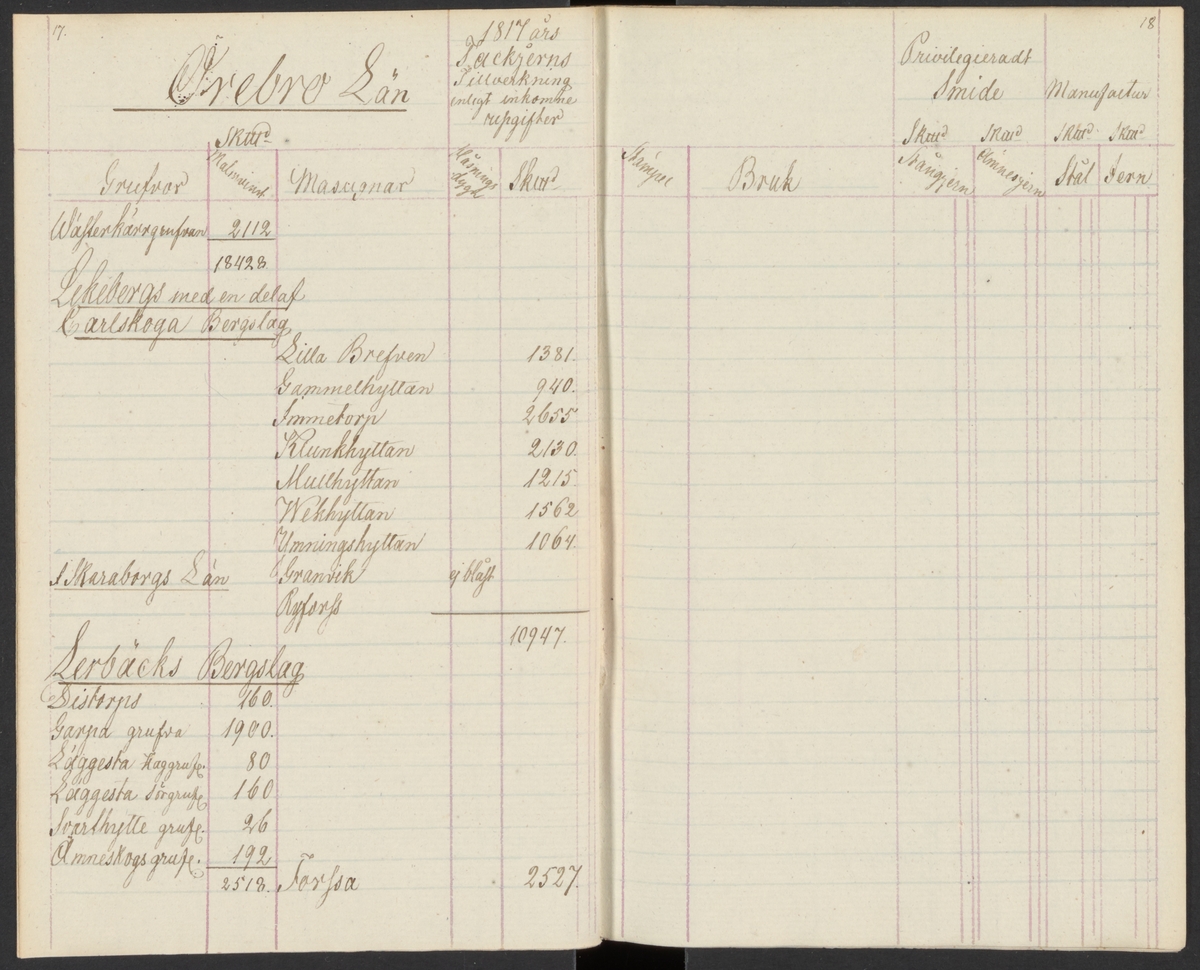 17.
Örebro Län
1817 års
Tackjerns
Tillverkning
enligt inkomne
uppgifter
Skttd
Grufvor
Malmvinst.
Masugnar
Blåsnings
dygn
Skttd
Wästerkärrgrufvan 2112
18428
Lekebergs med en del af
Carlskoga Bergslag
Lilla Brefven 1381.
Gammelhyttan 940.
Immetorp 2655
Klunkhyttan 2130.
Mullhyttan 1215.
Wekhyttan 1562
Umningshyttan 1064.
i Skaraborgs Län Granvik ej blåst
Ryforss
10947.
Lerbäcks Bergslag
Distorps 160.
Garpa grufva 1900.
Läggesta Haggrufv. 80
Läggesta Sörgrufv. 160
Svarthytte grufv. 26
Åmneskogs grufv. 192
2518. Forssa 2527.
18
Privilegieradt
Smide
Manufactur
Skttd Skttd Skttd Skttd
Stämpel
Bruk
Stångjern
Ämnesjern
Stål
Jern